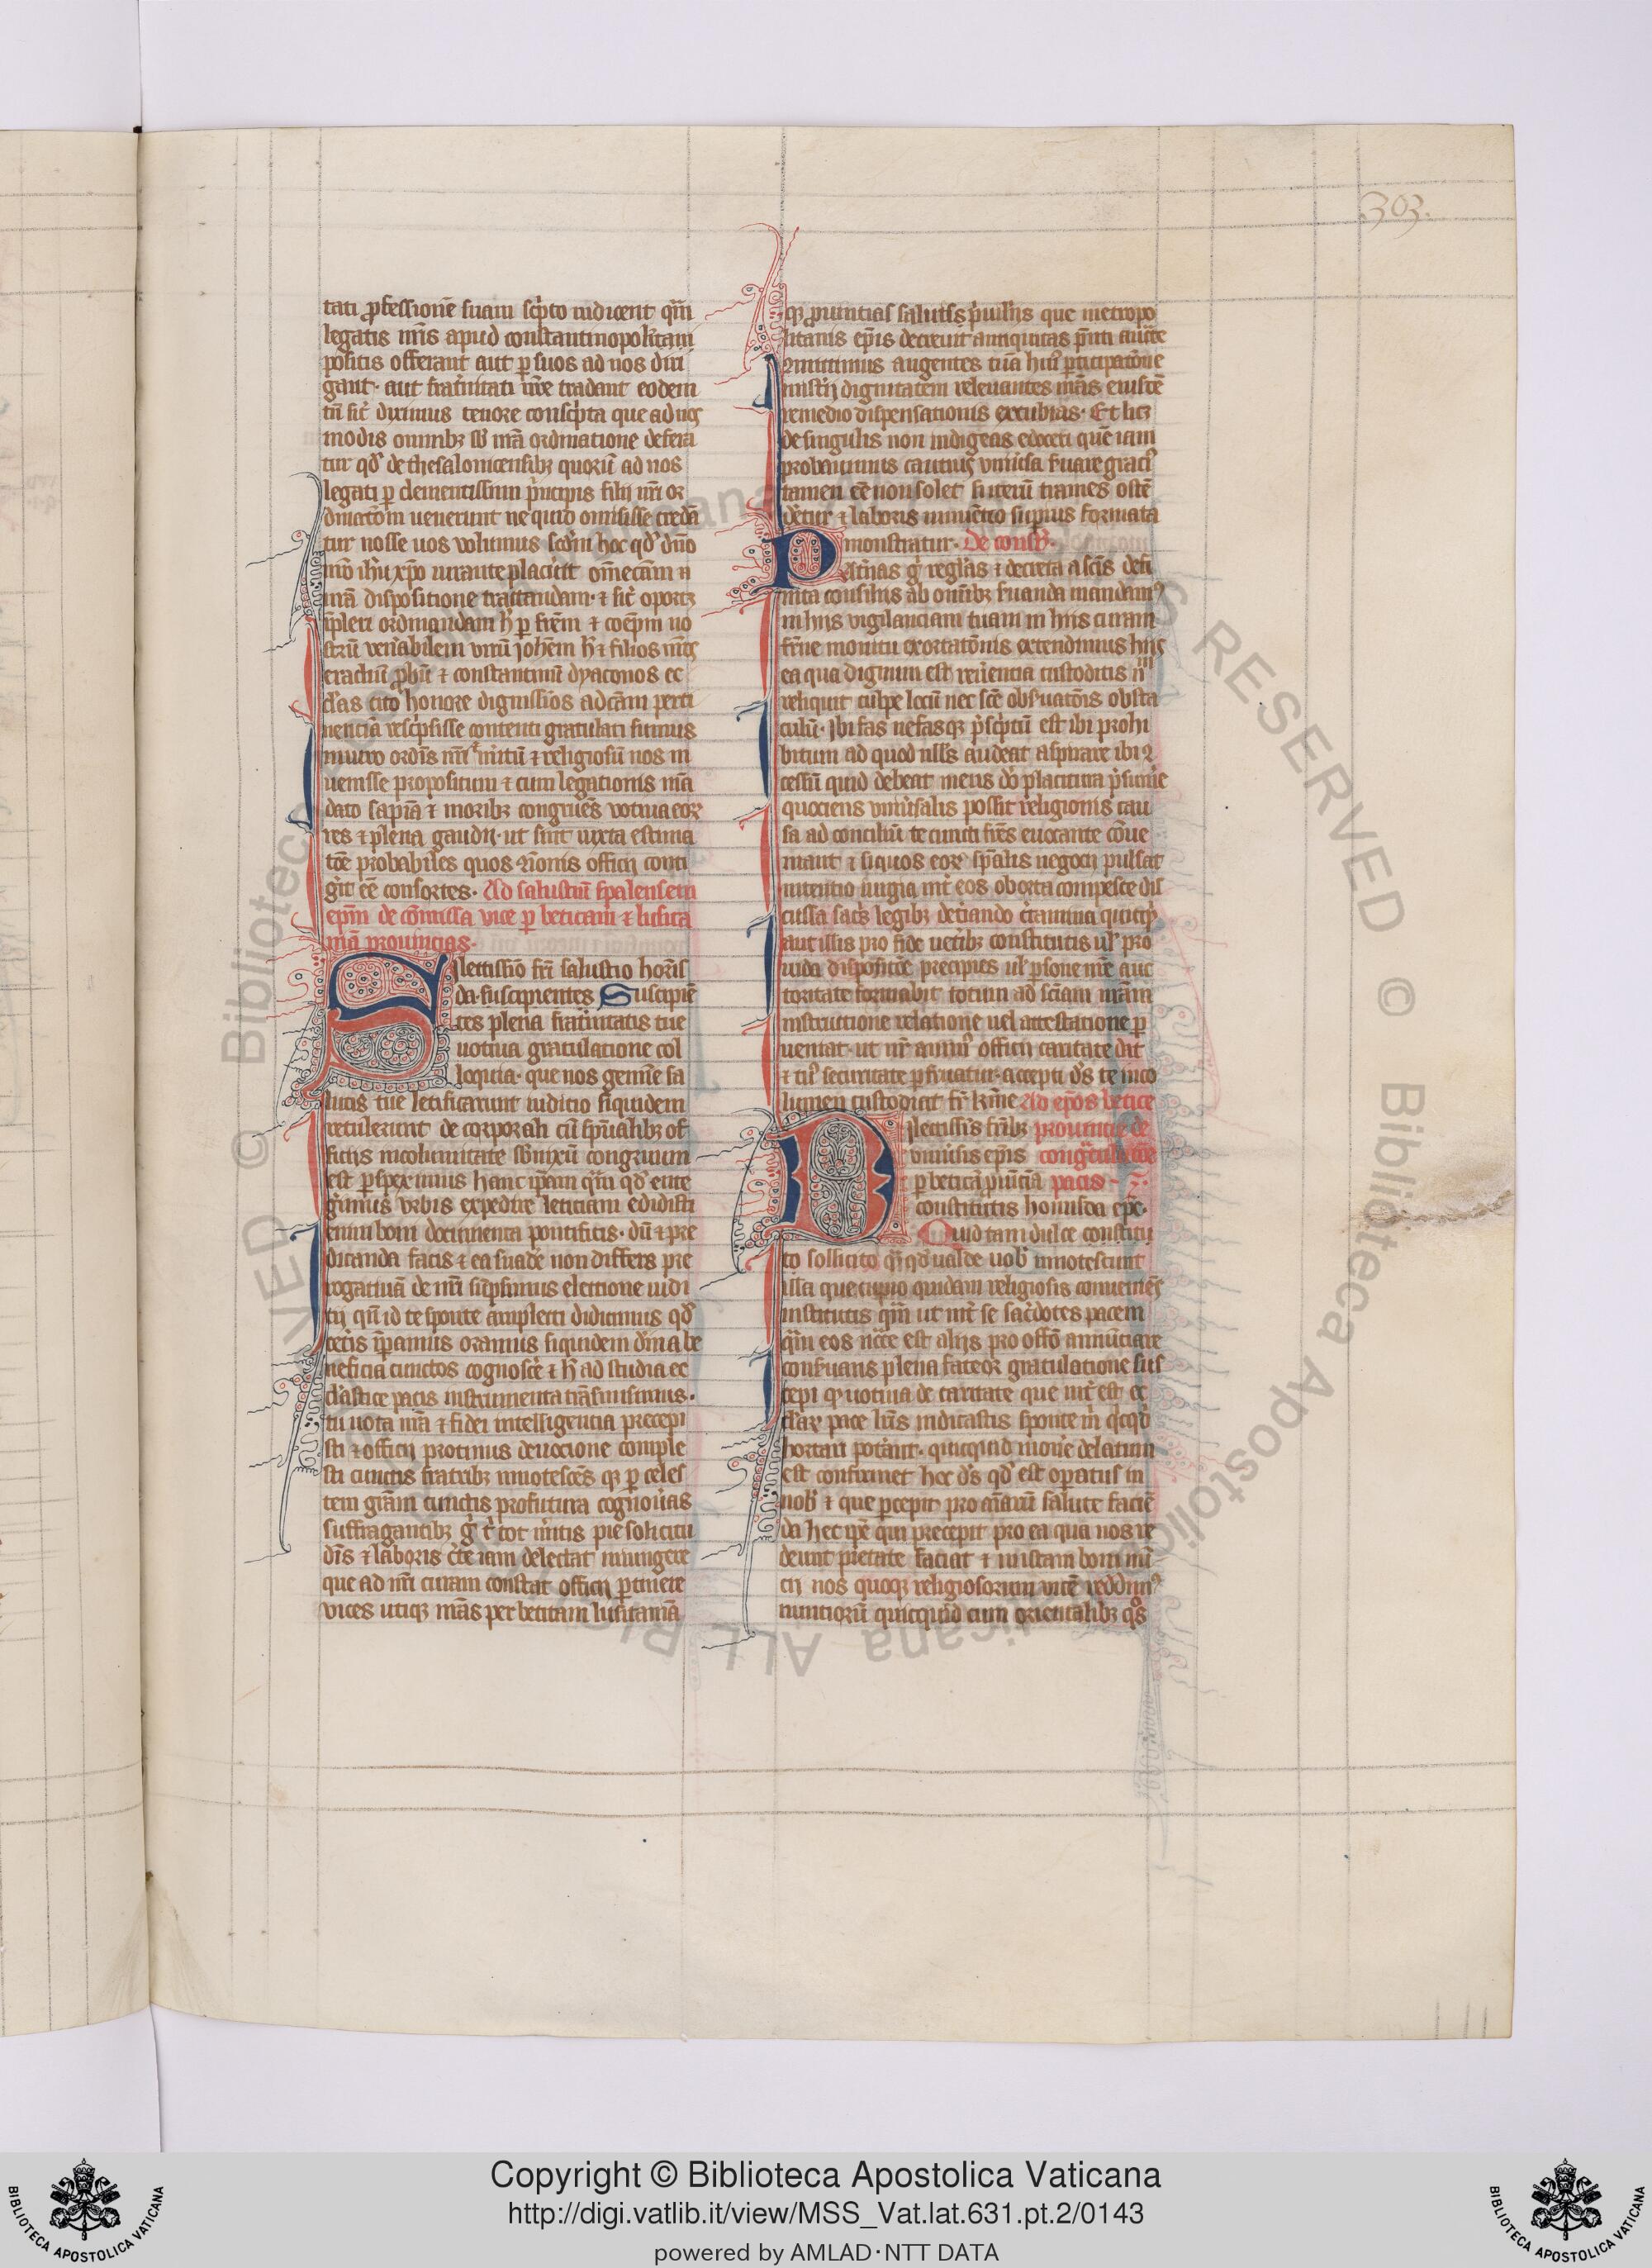 303.
tati ꝓfessionē suam scͥpto indicent qm̄
legatis nr̄is apud constantinopolitam
positis offerant aut ꝑ suos ad nos diri
gant· aut frat̓nitati vr̄e tradant eodem
tn̄ sic̄ diximus tenore consc̓pta que ad nos
modis omnibꝫ sb̓ nr̄a ordinatione defera
tur qd̓ de thesalonicensibꝫ quorū ad nos
legati ꝑ clementissimi pͥncipis filij nr̄i or
dinatōm uenerunt ne quid omisisse credā
tur nosse uos volumus scd̓m hoc qd̓ dn̄o
nr̄o ih̓u xp̄o iurante placuit om̄em cām
nr̄a dispositione tractandam· ⁊ sic̄ oportꝫ
īpleri ordinandam h̓ ꝑ frēm ⁊ coēpm no
strū ven̓abilem virū ioh̓em h̓ ⁊ filios nr̄os
erachiū pb̓m ⁊ constantinū dyaconos ec
cl̓as cito honore digniss̄ios ad cām perti
nenciā resc̓psisse contenti gratulati sumus
mutuo ordīs nr̄i uirtū ⁊ religiosū nos in
uenisse propositum ⁊ cum legationis mā
dato sapīa ⁊ moribꝫ congruēs votiua eoꝝ
res ⁊ plena gaudij· ut sint iuxta estima
tōe probabiles quos ōnonis officij conti
git eē consortes. Ad salustiū spalensem
ep̄m de cōmissa vice ꝑ beticam ⁊ lusita
niā prouincias.
Dilectissīo fr̄i salustio hormis
da· suscipientes Suscipiē
tes plena frat̓nitatis tue
uotiua gratulatione col
loquia· que nos gemīe sa
lutis tue letificarunt iuditio siquidem
retulerunt de corporali cū sp̄ualibꝫ of
ficijs incolumitate sb̓nixū congruum
est ꝑspeximus hanc ip̄am qm̄ qd̓ eui
gimus vrbis expedire leticiam edidisti
enim boni documenta pontificis· dū ⁊ pre
dicanda facis ⁊ ea suadē non differs pre
rogatiuā de nr̄i sūpsimus electione iudi
cij qn̄ id te sponte amplecti didicimus qd̓
cet̓is īpamus oramus siquidem dīna be
neficia cunctos cognoscē ⁊ h̓ ad studia ec
cl̓astice pacis instrumenta trāsmisimus·
tu uota nr̄a ⁊ fidei intelligencia precepi
sti ⁊ officij protinus deuocione comple
sti cunctis fratribꝫ innotescēs qꝫ ꝑ celes
tem grām cunctis profutura cognou̓as
suffragantibꝫ g̓ t̓ tot m̓itis pie solicitu
dīs ⁊ laboris c̓te iam delectat iniungere
que ad nr̄i curam constat officij ꝑtinere
vices utiqꝫ nr̄as per beticam lusitaniā
qꝫ ꝓuintias saluis pͥuil̓ijs que metropo
litanis ep̄is decreuit antiquitas pn̄ti auctē
ōmittimus augentes tuā huiꝰ ꝑticipatōne
mist̓ij dignitatem releuantes nr̄as eiusdē
remedio dispensationis excubias· Et licꝫ
de singulis non indigeas edoceri quē iam
probauimus cautiꝰ vniu̓sa s̓uare graciꝰ
tamen eē non solet si iterū trames ostē
detur ⁊ laboris iniuncto suꝑius formata
monstratur· De consti.
Patnas g̓ reglas ⁊ decreta a scīs defi
nita consilijs ab omībꝫ s̓uanda mandamꝰ
in hijs vigilanciam tuam in hijs curam
fr̄ne monitu exortatōnis extendimus hijs
ea qua dignum est reu̓entia custoditis n̓
reliquit culpe locū nec scē obs̓uatōis obsta
culū· Ibi fas nefasqꝫ p̓sc̓ptū est ibi prohi
bitum ad quod nll̓s audeat aspirare ibi ōn
cessū quid debeat mens dō placitura p̓sume
quociens vniu̓salis possit religionis cau
sa ad conciliū te cuncti fr̄es euocante cōue
niant ⁊ si quos eoꝝ sp̄alis negocij pulsat
intentio iurgia int̓ eos oborta compesce dis
cussa sacͥs legibꝫ det̓iando c̓tamina quicqͥd
aut illis pro fide uet̓ibꝫ constitutis ul̓ pro
uida dispositōe precipies ul̓ ꝑsone nr̄e auc
toritate formabit totum ad sc̄iam nr̄am
instructione relatione uel attestatione ꝑ
ueniat· ut nr̄ animꝰ officij caritate dat
⁊ tuꝰ securitate ꝑfruatur· accepti d̓s te inco
lumen custodiat fr̄ k̄me Ad ep̄os betice
Dilectissīs fr̄ibꝫ prouincie de
vniu̓sis ep̄is congratulatōe
ꝑ beticā ꝓuīciā pacis -
constitutis hormisda ep̄c·
Quid tam dulce constitu
to sollicito qͣ qd̓ ualde uob̓ innotescunt
illa que cupio quidam religiosis conueniens
institutis qm̄ ut int̓ se sac̓dotes pacem
qm̄ eos nc̄ce est alijs pro offō annūciare
cons̓uans plena fateor gratulatione sus
cepi qꝫ uotiua de caritate que int̓ est ec
cl̓aꝝ pace lr̄is indicastis sponte m̓ qͥcqͥd
hortari pot̓ant· quicquid mouē delatum
est confirmet hec d̓s qd̓ est oꝑatus in
nob̓ ⁊ que ꝑcepit pro ōīarū salute faciē
da hec ip̄e qui precepit pro ea qua nos re
deunt pietate faciat ⁊ iustam boni nū
cij nos quoqꝫ religiosorum vicē reddimꝰ
nuntiorū quicquid cum orientalibꝫ qͦs
Copyright © Biblioteca Apostolica Vaticana
http://digi.vatlib.it/view/MSS_Vat.lat.631.pt.2/0143
powered by AMLAD·NTT DATA
BIBLIOTECA APOSTOLICA VATICANA
BIBLIOTECA APOSTOLICA VATICANA